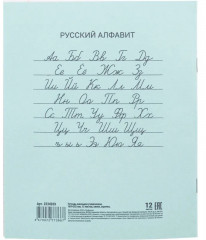 РУССКИЙ АЛФАВИТ
Аа Бб Вв Гг Дд
Ее Ёё Жж Зз
Ии Йй Кк Лл Мм
Нн Оо Пп Рр
Сс Тт Уу Фф Хх
Цц Чч Шш Щщ
ъ ы ь Ээ Юю Яя
12